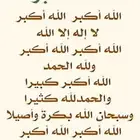 الله أكبر الله أكبر
لا إله إلا الله
الله أكبر الله أكبر
ولله الحمد
الله أكبر كبيرا
والحمدلله كثيرا
وسبحان الله بكرة وأصيلا
الله أكبر الله أكبر